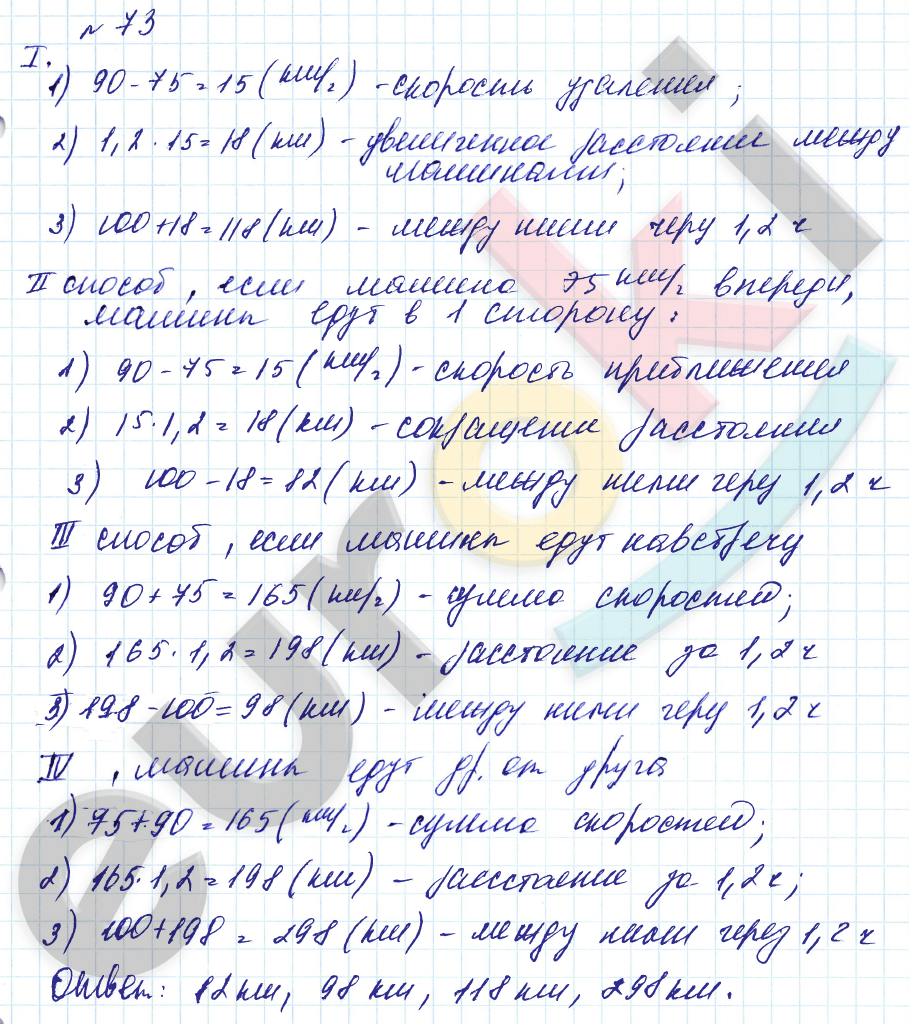 № 73
I.
1) 90 - 75 = 15 (км/ч) - скорость удаления;
2) 1,2 · 15 = 18 (км) - увеличенное расстояние между
машинами;
3) 100 + 18 = 118 (км) - между ними через 1,2 ч
II способ, если машина 75 км/ч впереди,
машины едут в 1 сторону:
1) 90 - 75 = 15 (км/ч) - скорость приближения
2) 15 · 1,2 = 18 (км) - сокращение расстояния
3) 100 - 18 = 82 (км) - между ними через 1,2 ч
III способ, если машины едут навстречу
1) 90 + 75 = 165 (км/ч) - сумма скоростей;
2) 165 · 1,2 = 198 (км) - расстояние за 1,2 ч
3) 198 - 100 = 98 (км) - между ними через 1,2 ч
IV , машины едут др. от друга
1) 75 + 90 = 165 (км/ч) - сумма скоростей;
2) 165 · 1,2 = 198 (км) - расстояние за 1,2 ч;
3) 100 + 198 = 298 (км) - между ними через 1,2 ч
Ответ: 12 км, 98 км, 118 км, 298 км.
euroki